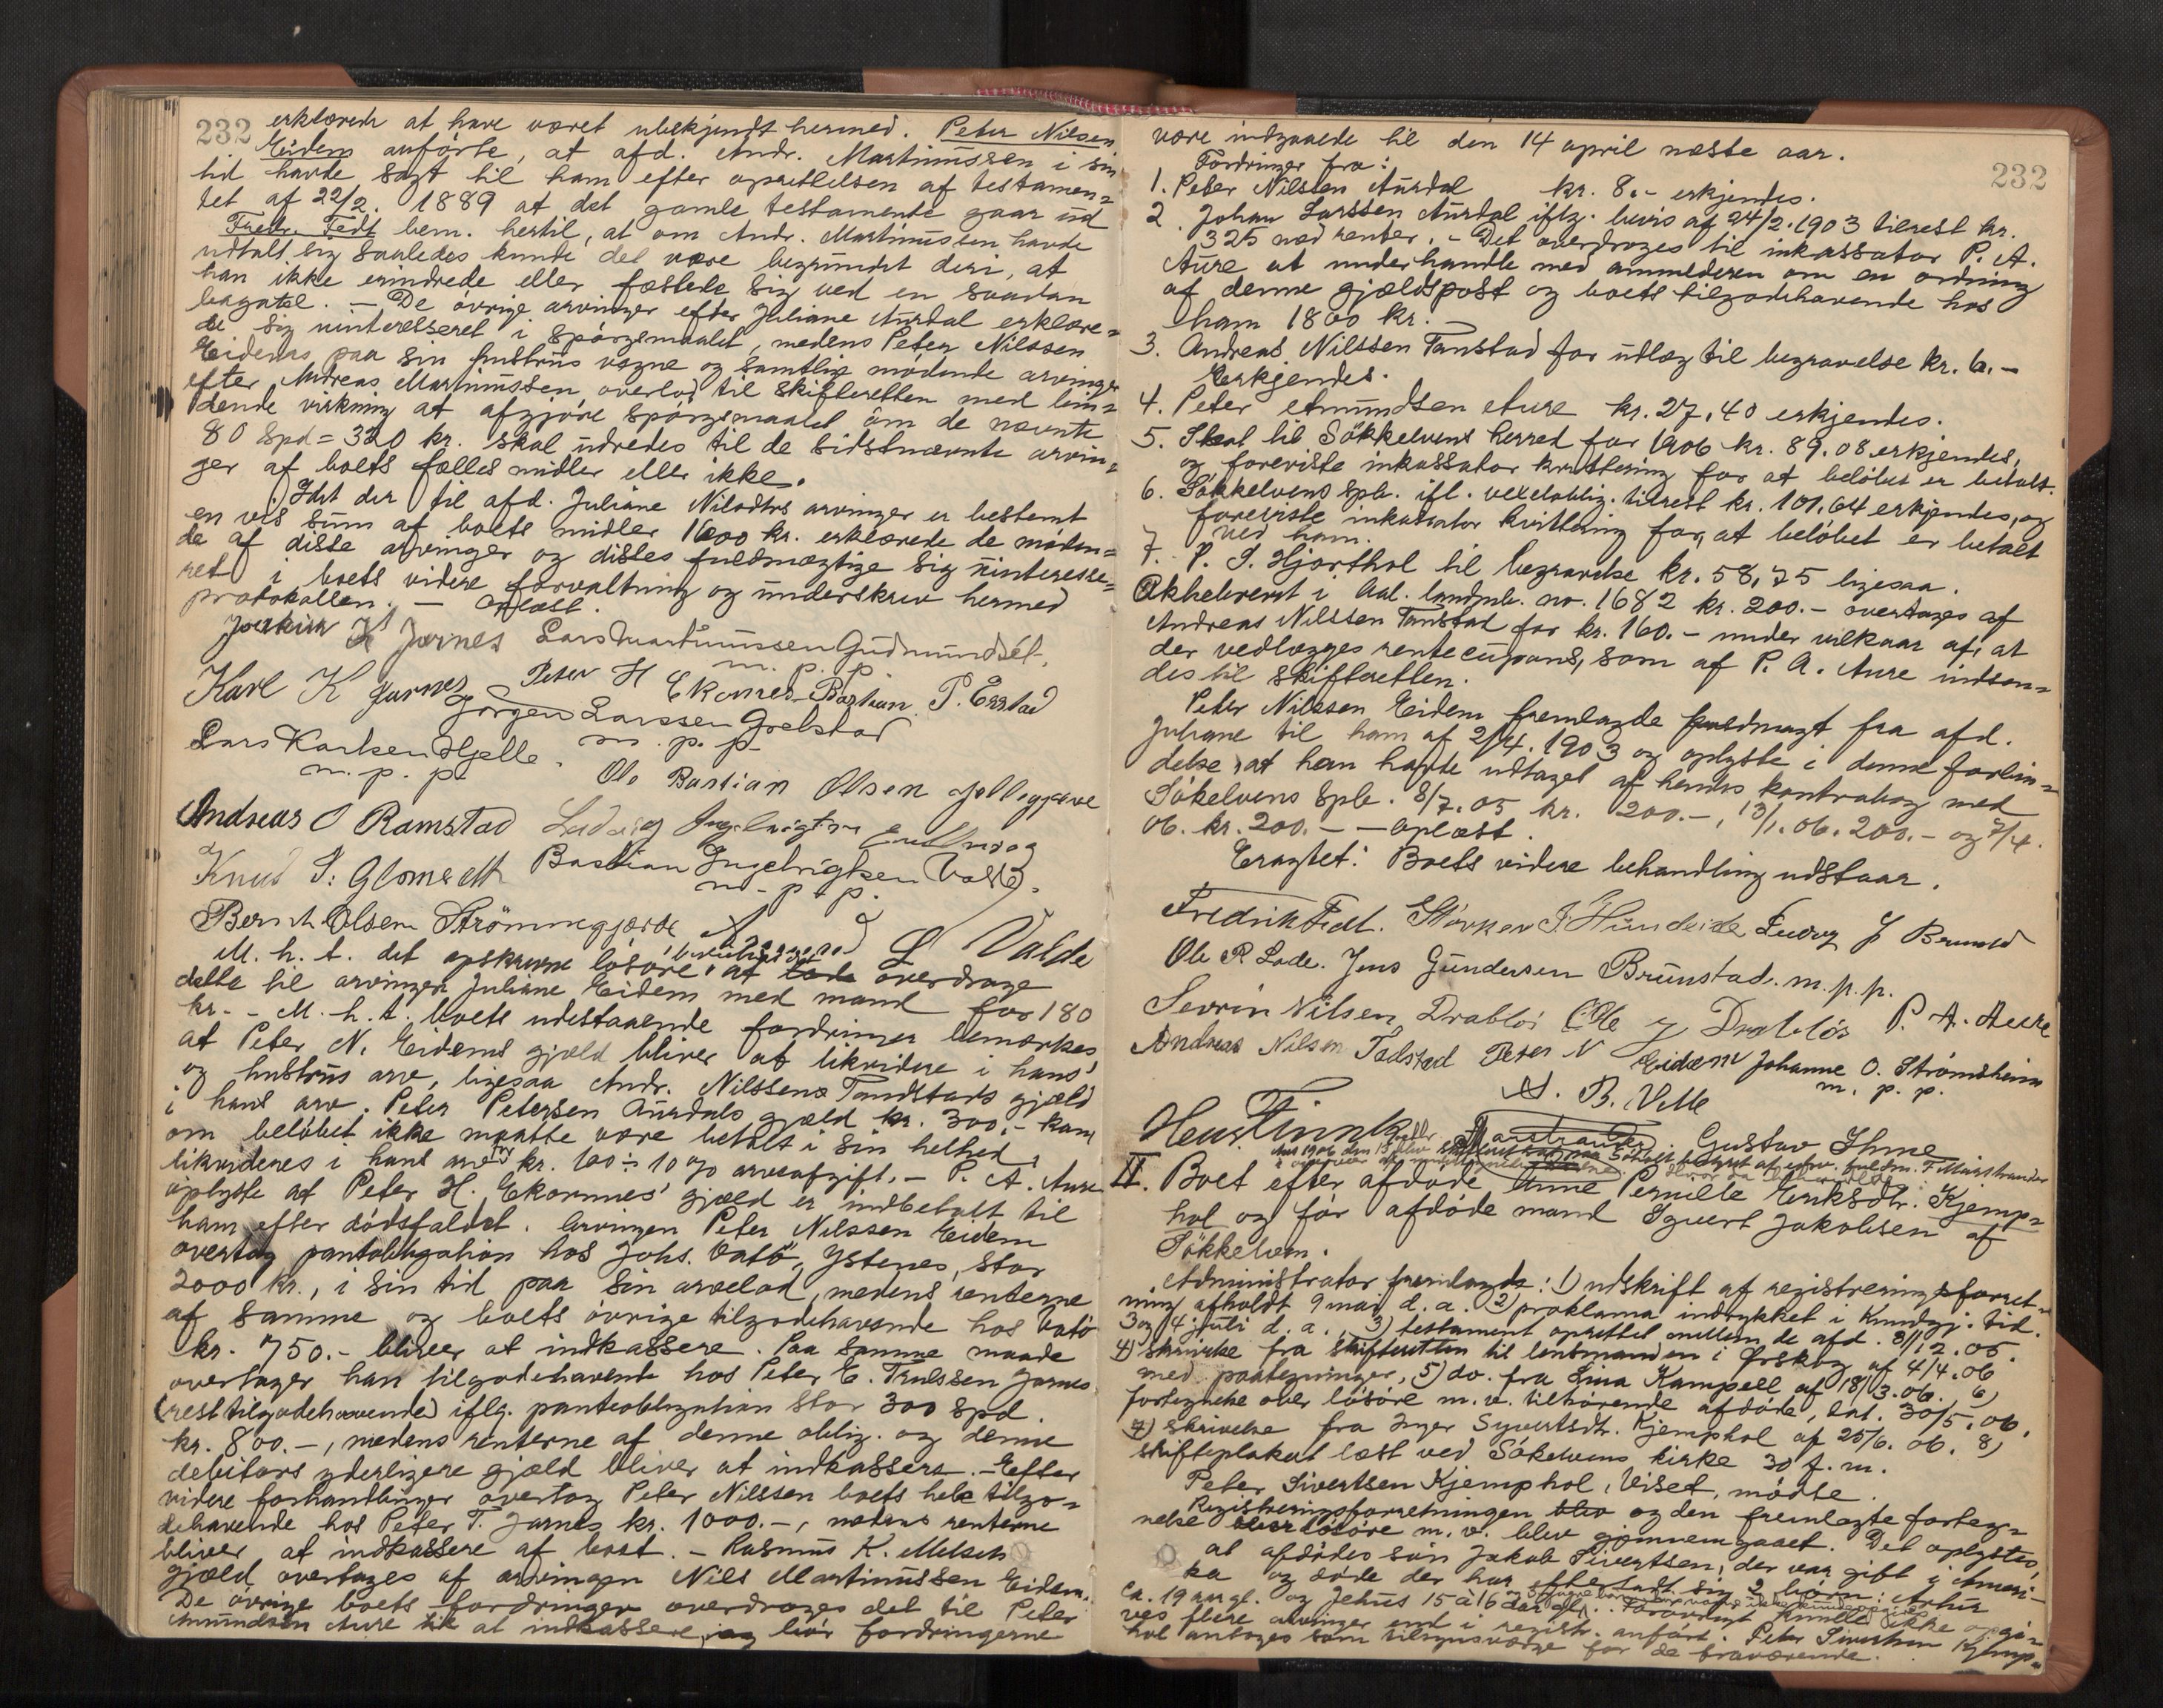 232
erklærede at have været ubekjendt hermed. Peter Nilsen
Eidem anförte, at afd. Andr. Martinussen i sin
tid havde sagt til ham efter oprettelsen af testamen=
tet af 22/2. 1889 at det gamle testamente gaar ud
Fredr. Fedt bem. hertil, at om Andr. Martinussen havde
udtalt sig saaledes kunde det være begrundet deri, at
han ikke erindrede eller fæstede sig ved en saadan
bagatel. — De övrige arvinger efter Juliane Aurdal erklære=
de sig uinteresseret i spörgsmaalet, medens Peter Nilssen
Eidems paa sin hustrus vegne og samtlige mödende arvinger
efter Andreas Martinussen overlod til skifteretten med bin=
dende virkning at afgjöre spörgsmaalet om de nævnte
80 Spd = 320 kr. skal udredes til de sidstnævnte arvin=
ger af boets fælles midler eller ikke.
Idet der til afd. Juliane Nilsdtrs arvinger er bestemt
en vis sum af boets midler 1600 kr. erklærede de möden=
de af disse arvinger og disses fuldmægtige sig uinteresse=
ret i boets videre forvaltning og underskrev hermed
protokollen. — Oplæst.
Joakim K Jarnes Lars Martinussen Gudmundset.
m. p. p.
Karl K Jarnes Peter H Ekornes Bastian P. Erstad
Jörgen Larssen Gjelstad
m. p. p.
Lars Karlsen Hjelle.
m. p. p.
Ole Bastian Olsen
Andreas O Ramstad Ludvig
Knud S. Glomseth Bastian Ingebrigtsen Valde.
m. p. p.
Bernt Olsen Strömmegjærde
L Valde
M. h. t. det opskrevne lösöre at overdrage
dette til arvingen Juliane Eidem med mand for 180
kr. - M. h. t. boets udestaaende fordringer bemærkes
at Peter N. Eidems gjæld bliver at likvidere i hans
og hustrus arv, ligesaa Andr. Nilssens Tandstads gjæld
i hans arv. Peter Petersen Aurdals gjæld kr. 300.- kan
om belöbet ikke maatte være betalt i sin helhed,
likvideres i hans arv kr. 100 ÷ 10 % arveafgift. — P. A. Aure
oplyste at Peter H. Ekornnes' gjæld er indbetalt til
ham efter dödsfaldet. Arvingen Peter Nilssen Eidem
overtog pantobligation hos Johs. Vatö, Ystenes, stor
2000 kr., i sin tid paa sin arvelod, medens renterne
af samme og boets övrige tilgodehavende hos Vatö
kr. 750.- bliver at indkassere. Paa samme maade
overtager han tilgodehavende hos Peter E. Trulssen Jarnes
(resttilgodehavende) iflg. panteobligation stor 300 spd.
kr. 800.-, medens renterne af denne oblig. og denne
debitors yderligere gjæld bliver at indkassere. — Efter
videre forhandlinger overtog Peter Nilssen boets hele tilgo=
dehavende hos Peter T. Jarnes kr. 1000.-, medens renterne
bliver at indkassere af boet. — Rasmus K. Melseth
gjæld overtages af arvingen Nils Martinussen Eidem.
De övrige boets fordringer overdroges det til Peter
Amundsen Aure at indkassere, og bör fordringerne
232
være indgaaede til den 14 april næste aar.
Fordringer fra:
1. Peter Nilsen Aurdal kr. 8.- erkjendes.
2. Johan Larssen Aurdal iflg. bevis af 24/2. 1903 tilrest kr.
325 med renter. - Det overdroges til inkassator P. A.
Aure at underhandle med anmelderen om en ordning
af denne gjældspost og boets tilgodehavende hos
ham 1800 kr.
3. Andreas Nilssen Tanstad for udlæg til begravelse kr. 6.-
Erkjendes.
4. Peter Amundsen Aure kr. 27,40 erkjendes.
5. Skat til Sökkelvens herred for 1906 kr. 89.08 erkjendes,
og foreviste inkassator kvittering for at belöbet er betalt.
6. Sökkelvens Spb. ifl. vexeloblig. tilrest kr. 101,64 erkjendes, og
foreviste inkassator kvittering for, at belöbet er betalt
ved ham.
7. P. I. Hjorthol til begravelse kr. 58,75 ligesaa.
Aktiebrevet i Aal. landmb. no. 1682 kr. 200.- overtages af
Andreas Nilssen Tanstad for kr. 160.- under vilkaar af, at
der vedlægges rentecupons, som af P. A. Aure indsen=
des til skifteretten.
Peter Nilssen Eidem fremlagde fuldmagt fra afd.
Juliane til ham af 2/4. 1903 og oplyste i denne forbin=
delse at han havde udtaget af hendes kontrabog med
Sökelvens Spb. 8/7. 05 kr. 200.-, 13/1. 06. 200.- og 7/4.
06. kr. 200.- — Oplæst.
Eragtet: Boets videre behandling udstaar.
Fredrik Fedt. Störker I. Hundeide Ludvig J Brunstad
Ole R Lade. Jens Gundersen Brunstad. m. p. p.
Severin Nilsen Drablös Ole J Drablös P. A. Aure
Andreas Nilsen Tadstad Peter N Eidem Johanne O. Strömsheim
m. p. p.
A. B. Velle
Hens. Finnk Gustav Ihme
II. Boet efter afdöde Anne Pernille Eriksdtr. Kjemp=
hol og för afdöde mand Syvert Jakobsen af
Sökkelven.
Administrator fremlagde: 1) udskrift af registreringsforret=
ning afholdt 9 mai d. a. 2) proklama indrykket i Kundgj. tid.
3 og 4 juli d. a., 3) testament oprettet mellem de afd. 8/12. 05.
4) skrivelse fra skifteretten til lensmanden i Örskog af 4/4. 06
med paategninger, 5) do. fra Lina Kampell af 18/3. 06. 6)
fortegnelse over lösöre m. v. tilhörende afdöde, dat. 30/5. 06.
7) skrivelse fra Inger Syvertsdtr. Kjemphol af 25/6. 06. 8)
skifteplakat læst ved Sökelvens kirke 30 f. m.
Peter Sivertsen Kjemphol, Viset, mödte.
Registreringsforretningen blev og den fremlagte forteg=
nelse over lösöre m. v. blev gjennemgaaet. Det oplystes,
at afdödes sön Jakob Sivertsen, der var gift i Ameri=
ka og döde der har efterladt sig 2 börn: Artur
ca. 19 aar gl. og Jehus 15 à 16 aar gl. Forövrigt kunde ikke opgi=
ves flere arvinger end i registr. anfört. Peter Sivertsen Kjemp=
hol antages som tilsynsværge for de fraværende.